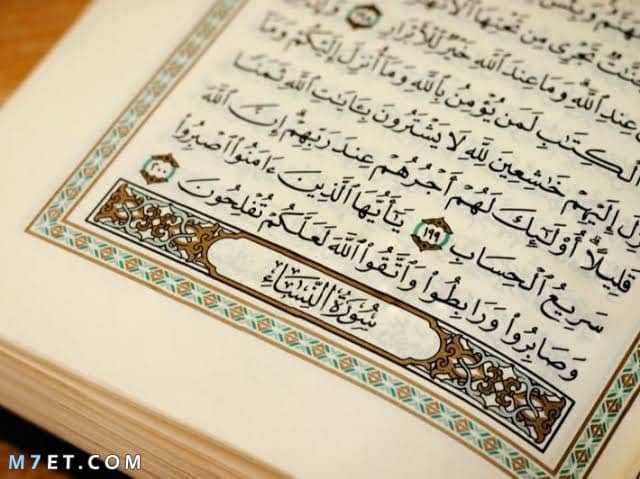 تَجْرِى مِن تَحْتِهَا ٱلْأَنْهَٰرُ
عِندِ ٱللَّهِ وَمَا عِندَ ٱللَّهِ خَيْرٌ لِّلْأَبْرَارِ ١٩٨
ٱلْكِتَٰبِ لَمَن يُؤْمِنُ بِٱللَّهِ وَمَآ أُنزِلَ إِلَيْكُمْ وَمَآ
إِلَيْهِمْ خَٰشِعِينَ لِلَّهِ لَا يَشْتَرُونَ بِـَٔايَٰتِ ٱللَّهِ ثَمَنًا
قَلِيلًا ۗ أُو۟لَٰٓئِكَ لَهُمْ أَجْرُهُمْ عِندَ رَبِّهِمْ ۗ إِنَّ ٱللَّهَ
سَرِيعُ ٱلْحِسَابِ ١٩٩ يَٰٓأَيُّهَا ٱلَّذِينَ ءَامَنُوا۟ ٱصْبِرُوا۟
وَصَابِرُوا۟ وَرَابِطُوا۟ وَٱتَّقُوا۟ ٱللَّهَ لَعَلَّكُمْ تُفْلِحُونَ ٢٠٠
سُورَةُ النِّسَاءِ
M7ET.COM